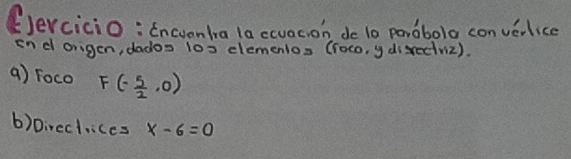 Ejercicio: Encuentra la ecuación de lo parábola con vértice
en el origen, dados los elementos (foco, y directriz).
a) Foco F(-5/2, 0)
b) Directrices x-6=0